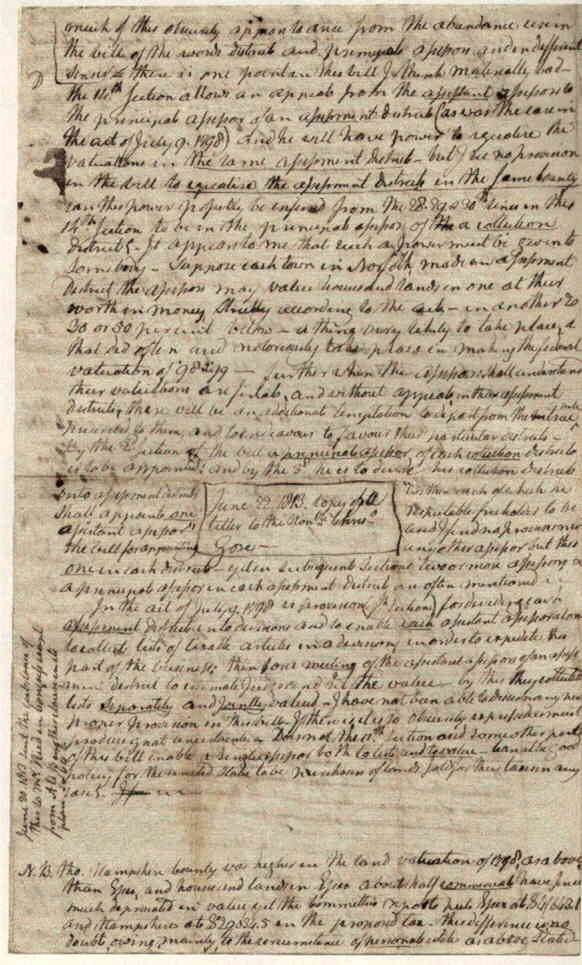 much of this obscurity appears to arise from the abundance use in
the bill of the words district and principal assessor and in different
senses there is one point in this bill I think materially bad—
the 14th section allows an appeal from the assistant assessors to
the principal assessor of an assessment district (as was the case in
the act of July 9. 1798) and he will have power to equalise the
valuations in the same assessment district— but I see no provision
in the bill to equalise the assessment districts in the same County
can this power properly be infered from the 28. 29 & 30th lines in this
14th section to be in the principal assessor of the a collection
district? It appears to me that such a power must be given to
somebody— Suppose each town in Norfolk made an assessment
district the assessors may value houses and lands in one at their
worth in money strictly according to the act— in another 20
or 30 per cent below— a thing very likely to take place, &
that did often and notoriously take place in making the federal
valuation of 98 & 99— further when the assessors shall understand
their valuations are final, and without appeal, in their assessment
districts, there will be an additional temptation to depart from the
prescribed to them, and to endeavour to favour their particular districts—
By the 2d section of the bill a principal assessor of each collection district
is to be appointed: and by the 3d he is to divide his collection district
into assessment districts
shall appoint one
assistant assessor
the bill for appointing
June 22. 1813. Copy of a
letter to the Honble Chrisr
Gore—
within each of which he
respectable freeholder to be
and I find no provision in
any other assessor but this
one in each district— yet in subsequent sections two or more assessors &
a principal assessor in each assessment district are often mentioned
In the act of July 9. 1798 is provision for dividing each
assessment district into divisions and to enable each assistant assessor alone
to collect lists of taxable articles in a division, in order to expedite this
part of the business; then for a meeting of the assistant assessors of an assess-
ment district to estimate, and set the value— by this they collected
lists separately and jointly valued— I have not been able to discern any such
proper provision in this bill— If there is, it is so obscurely expressed as must
produce great uncertainty— Does not the 10th section and some other parts
of this bill enable a single assessor both to list and to value— can it be good
policy for the united States to be purchasers of lands sold for their taxes in any
case?
June 30. 1813 sent the substance of
this to Mr. Reed in Congress
N.B. tho. Hampshire County was higher in the land valuation of 1798, as above
than Essex, and houses and lands in Essex about half commercial have since
much depreciated in value yet the committee report to put Essex at
and Hampshire at in the proposed tax. This difference is no
doubt, owing, mainly, to the circumstance of personal estate as above stated